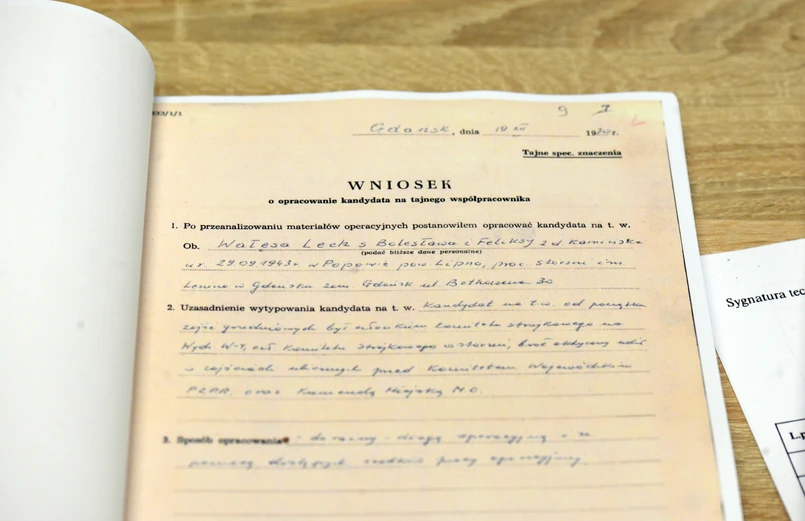 9
Gdańsk, dnia 19 XII 1970 r.
Tajne spec. znaczenia
WNIOSEK
o opracowanie kandydata na tajnego współpracownika
1. Po przeanalizowaniu materiałów operacyjnych postanowiłem opracować kandydata na t. w.
Ob. Wałęsa Lech s Bolesława i Feliksy z d. Kamińska
(podać bliższe dane personalne)
ur. 29.09.1943 r. w Popowie pow. Lipno, prac. Stoczni im.
Lenina w Gdańsku zam. Gdańsk ul. Bethovena 30
2. Uzasadnienie wytypowania kandydata na t. w. Kandydat na t.w. od początku
zajść grudniowych był członkiem komitetu strajkowego na
Wydz. W-4, czł. Komitetu Strajkowego Stoczni, brał aktywny udz.
w zajściach ulicznych przed Komitetem Wojewódzkim
PZPR oraz Komendą Miejską M.O.
3. Sposób opracowania - doraźny - drogą operacyjną - za
pomocą dostępnych środków pracy operacyjnej
Sygnatura tec
L.p